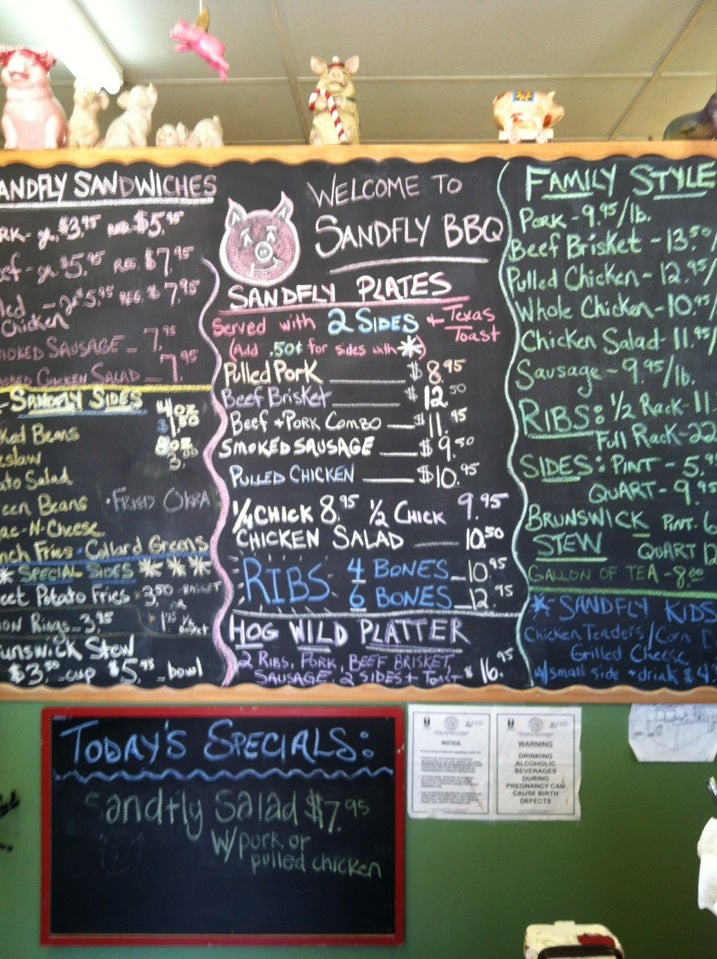 ANDFLY SANDWICHES
RK - Jr. $3.95 REG. $5.95
ef - Jr. $5.95 REG. $7.95
lled - Jr $5.95 REG. $7.95
Chicken
MOKED SAUSAGE - 7.95
OKED CHICKEN SALAD - 7.95
SANDFLY SIDES
4 oz
$1.50
8 oz
3.00
ked Beans
eslaw
ato Salad
een Beans • FRIED OKRA
ac-N-Cheese
nch Fries • Collard Greens
* SPECIAL SIDES * * *
eet Potato Fries 3.50 - BASKET
OR
ion Rings - 3.95
1.95 1/2 BASKET
runswick Stew
$3.50 - cup $5.95 - bowl
WELCOME TO
SANDFLY BBQ
SANDFLY PLATES
Served with 2 SIDES + Texas Toast
(Add .50¢ for sides with *)
Pulled Pork $8.95
Beef Brisket $12.50
Beef + Pork Combo $11.95
SMOKED SAUSAGE $9.50
PULLED CHICKEN $10.95
1/4 CHICK 8.95 1/2 CHICK 9.95
CHICKEN SALAD 10.50
RIBS 4 BONES 10.95
6 BONES 12.95
HOG WILD PLATTER
2 RIBS, PORK, BEEF BRISKET,
SAUSAGE, 2 SIDES + TOAST $16.95
FAMILY STYLE
PORK - 9.95/lb.
Beef Brisket - 13.50/
Pulled Chicken - 12.95/
Whole Chicken - 10.95/
Chicken Salad - 11.95/
Sausage - 9.95/lb.
RIBS: 1/2 Rack - 11.
Full Rack - 22
SIDES: PINT - 5.9
QUART - 9.95
BRUNSWICK PINT - 6
STEW QUART 12
GALLON OF TEA - 8.00
* SANDFLY KIDS
Chicken Tenders/Corn D
Grilled Cheese
w/small side + drink $4.
TODAY'S SPECIALS:
Sandfly Salad $7.95
w/pork or
pulled chicken
NOTICE
WARNING
DRINKING
ALCOHOLIC
BEVERAGES
DURING
PREGNANCY CAN
CAUSE BIRTH
DEFECTS